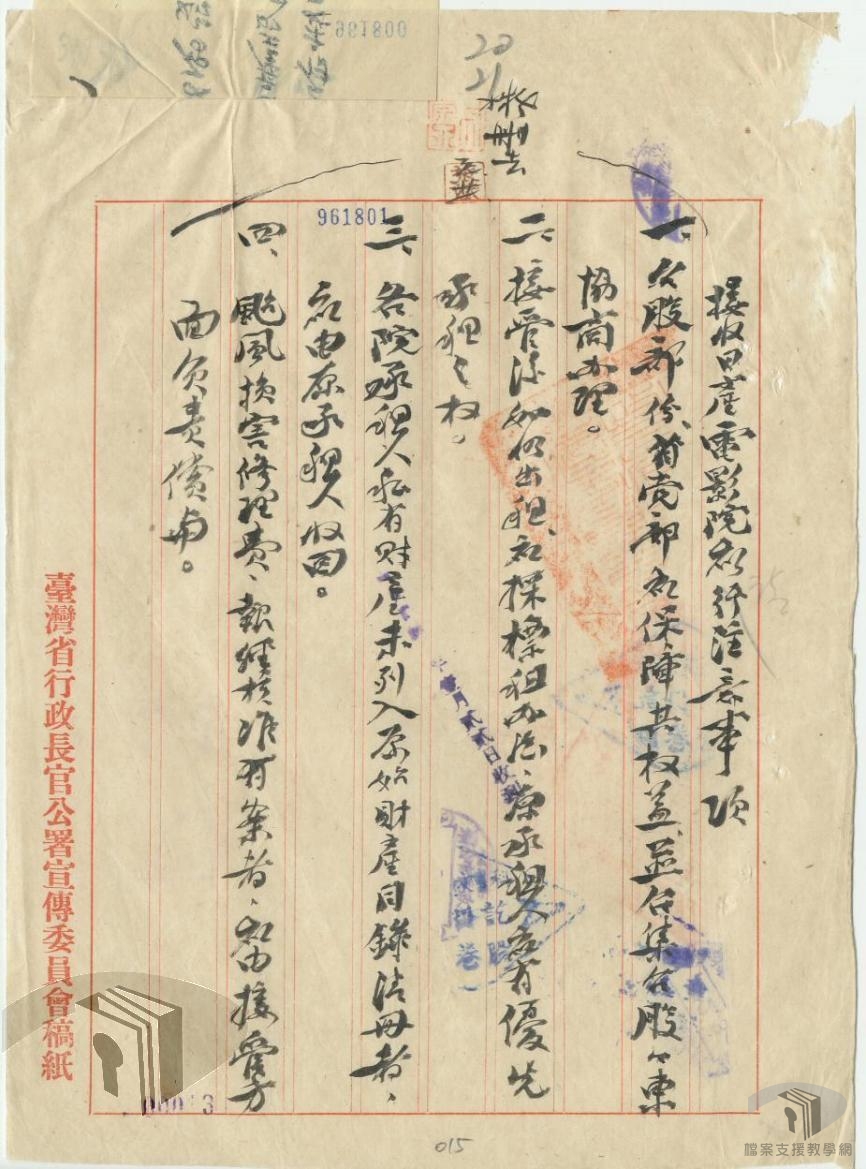 接收日產電影院应行注意事項
一、台股部份、省党部应保障其权益、並召集台股々東
協商办理。
二、接管後如仍出租、应採標租办法、原承租人应有優先
承租之权。
三、各院承租人私有財產未列入原始財產目錄清册者、
应由原承租人收回。
四、颱風損害修理費、報經核准有案者、应由接管方
面負責償
臺灣省行政長官公署宣傳委員會稿紙
961801
961800
015
檔案支援教學網